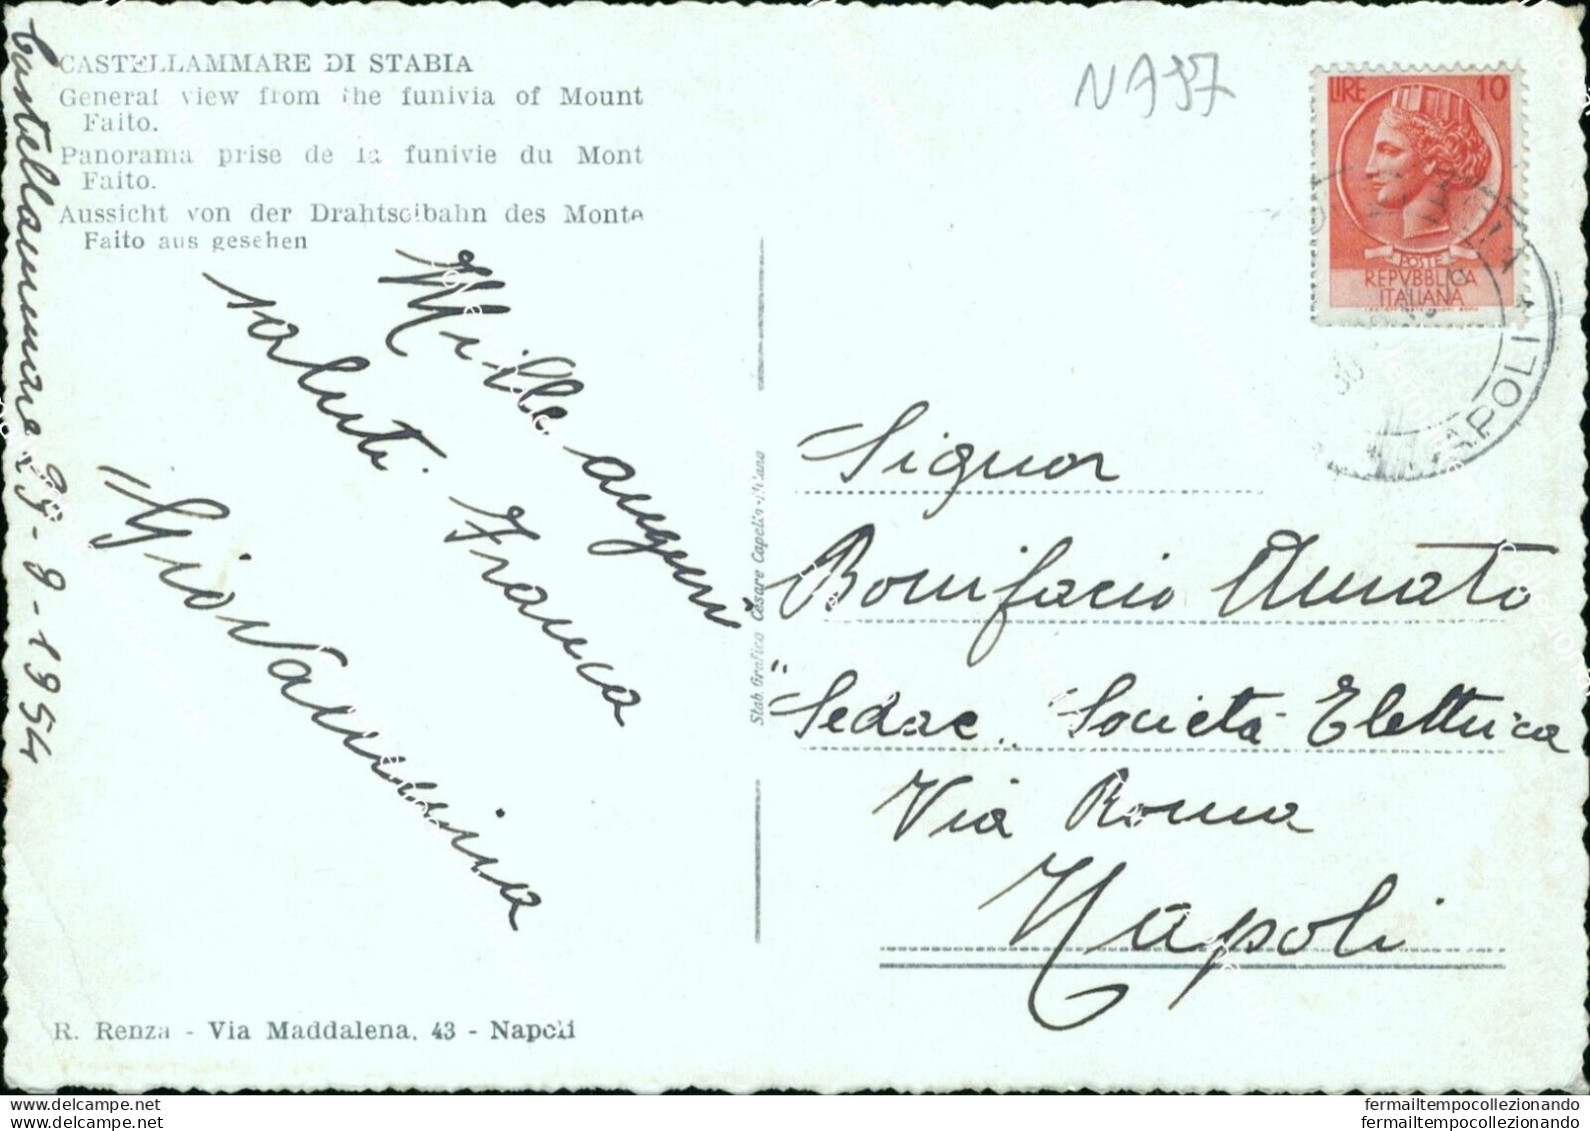 CASTELLAMMARE DI STABIA
General view from the funivia of Mount
Faito.
Panorama prise de la funivie du Mont
Faito.
Aussicht von der Drahtseibahn des Monte
Faito aus gesehen
Castellammare 29-9-1954
Mille auguri
saluti Franca
Giovannina
NA937
LIRE 10
POSTE
REPVBBLICA
ITALIANA
NAPOLI
Stab. Grafico Cesare Capello - Milano
Signor
Bonifacio Amato
"Sedac" Società Elettrica
Via Roma
Napoli
R. Renza - Via Maddalena, 43 - Napoli
fermailtempocollezionando
fermailtempocollezionando